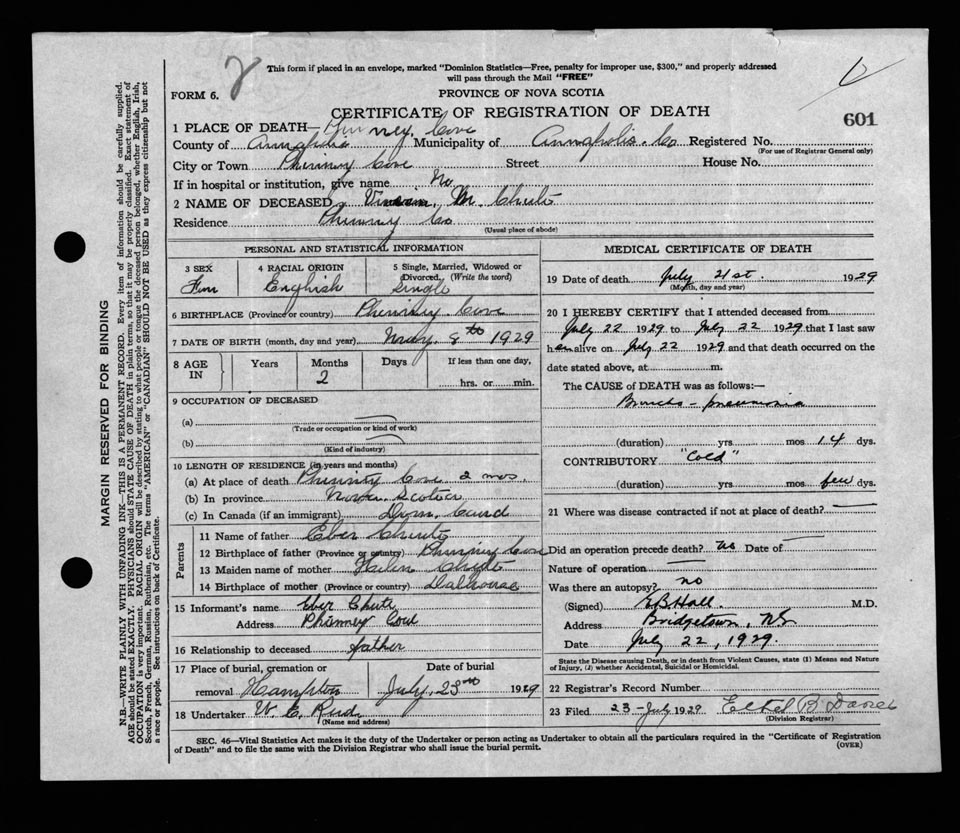 This form if placed in an envelope, marked "Dominion Statistics—Free, penalty for improper use, $300," and properly addressed
will pass through the Mail "FREE"
FORM 6.
PROVINCE OF NOVA SCOTIA
CERTIFICATE OF REGISTRATION OF DEATH
601
1 PLACE OF DEATH— Cove
County of Annapolis Municipality of Annapolis Co Registered No.
(For use of Registrar General only)
City or Town Phinney Cove Street House No.
If in hospital or institution, give name No
2 NAME OF DECEASED M. Chute
Residence Phinney Co
(Usual place of abode)
PERSONAL AND STATISTICAL INFORMATION
3 SEX 4 RACIAL ORIGIN 5 Single, Married, Widowed or Divorced. (Write the word)
Fem English Single
6 BIRTHPLACE (Province or country) Phinney Cove
7 DATE OF BIRTH (month, day and year) May 8th 1929
8 AGE IN Years Months Days If less than one day,
2 hrs. or min.
9 OCCUPATION OF DECEASED
(a)
(Trade or occupation or kind of work)
(b)
(Kind of industry)
10 LENGTH OF RESIDENCE (in years and months)
(a) At place of death Phinney Cove 2 mos.
(b) In province Nova Scotia
(c) In Canada (if an immigrant) Dom. Cand
Parents
11 Name of father Eber Chute
12 Birthplace of father (Province or country) Phinney Cove
13 Maiden name of mother Helen Chute
14 Birthplace of mother (Province or country) Dalhousie
15 Informant's name Eber Chute
Address Phinney Cove
16 Relationship to deceased father
17 Place of burial, cremation or Date of burial
removal Hampton July, 23rd 1929
18 Undertaker W. E.
(Name and address)
MEDICAL CERTIFICATE OF DEATH
19 Date of death July 21st. 1929
(Month, day and year)
20 I HEREBY CERTIFY that I attended deceased from
July 22 1929 to July 22 1929 that I last saw
her alive on July 22 1929 and that death occurred on the
date stated above, at m.
The CAUSE of DEATH was as follows:—
Broncho-pneumonia
(duration) yrs mos 14 dys.
CONTRIBUTORY "Cold"
(duration) yrs. mos few dys.
21 Where was disease contracted if not at place of death?
Did an operation precede death? No Date of
Nature of operation
Was there an autopsy? no
(Signed) E B Hall M.D.
Address Bridgetown, NS
Date July 22, 1929.
State the Disease causing Death, or in death from Violent Causes, state (1) Means and Nature
of Injury, (2) whether Accidental, Suicidal or Homicidal.
22 Registrar's Record Number
23 Filed 23-July 1929 Ethel B
(Division Registrar)
SEC. 46—Vital Statistics Act makes it the duty of the Undertaker or person acting as Undertaker to obtain all the particulars required in the "Certificate of Registration
of Death" and to file the same with the Division Registrar who shall issue the burial permit.
(OVER)
MARGIN RESERVED FOR BINDING
N.B.—WRITE PLAINLY WITH UNFADING INK—THIS IS A PERMANENT RECORD. Every item of information should be carefully supplied.
AGE should be stated EXACTLY. PHYSICIANS should STATE CAUSE OF DEATH in plain terms, so that it may be properly classified. Exact statement of
OCCUPATION is very important. RACIAL ORIGIN will be described by stating to what people or tongue the deceased person belonged, whether English, Irish,
Scotch, French, German, Russian, Ruthenian, etc. The terms "AMERICAN" or "CANADIAN" SHOULD NOT BE USED as they express citizenship but not
a race or people. See instructions on back of Certificate.